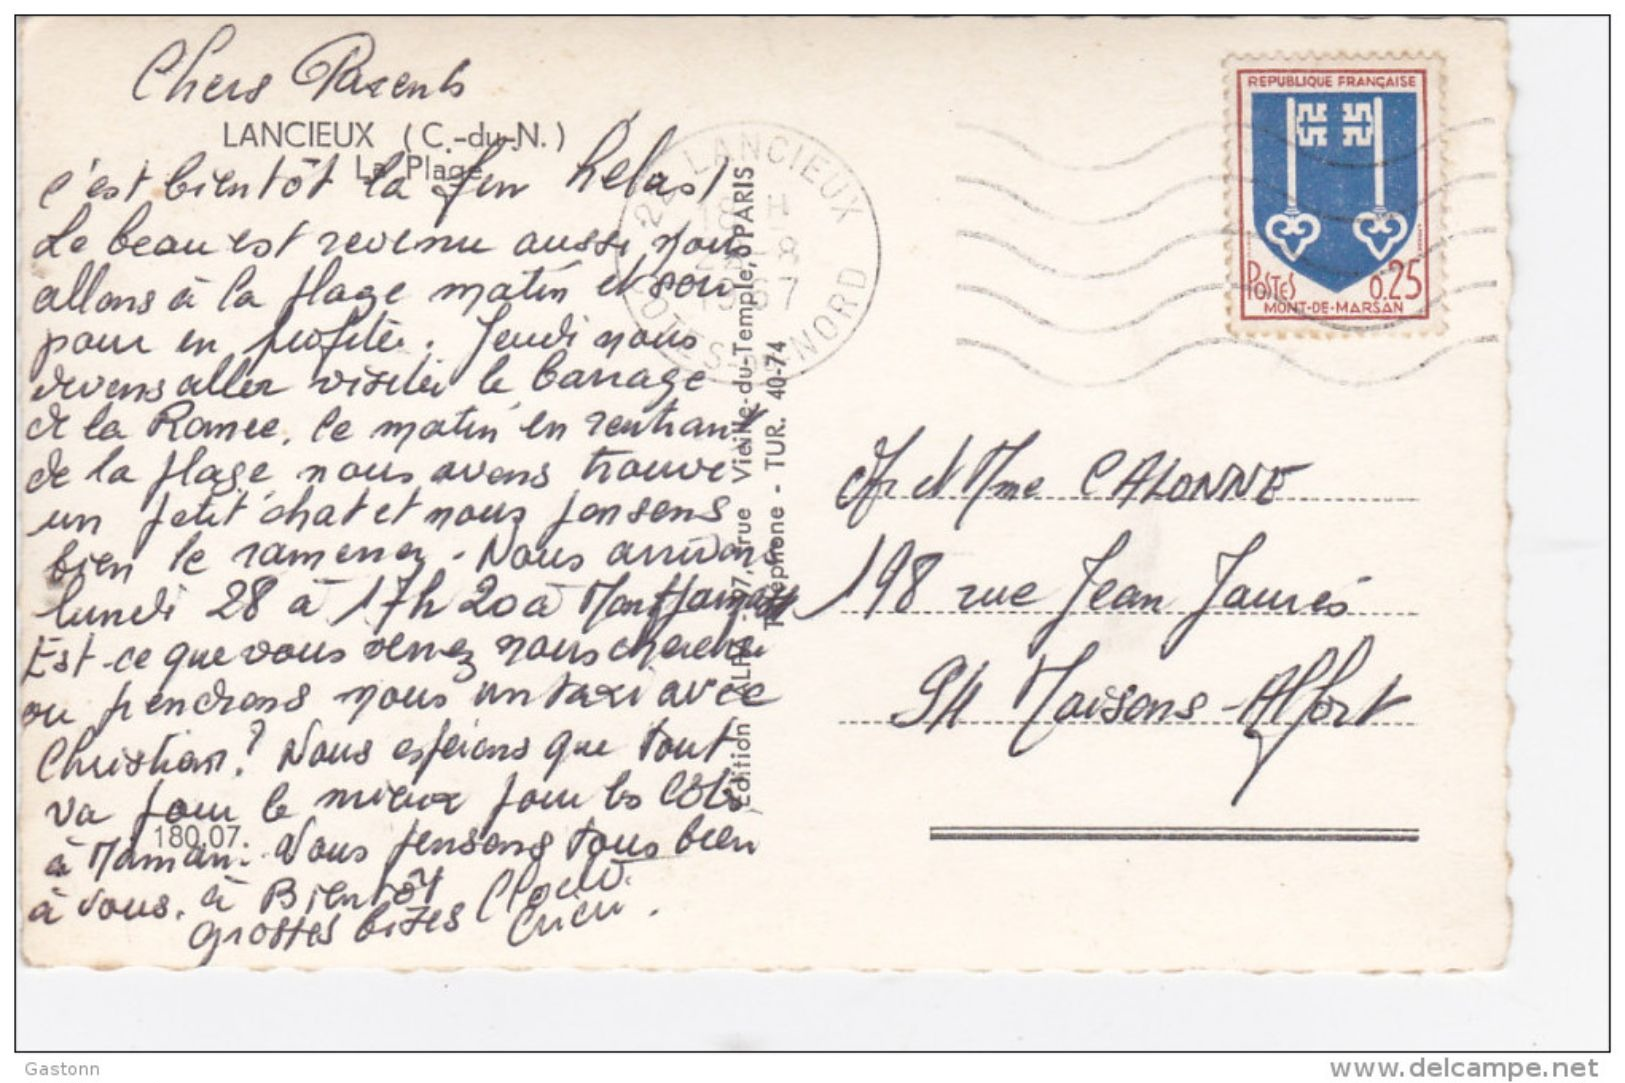 Chers Parents
LANCIEUX (C.-du-N.)
La Plage
c'est bientôt la fin hélas!
Le beau est revenu aussi nous
allons à la plage matin et soir
pour en profiter. Jeudi nous
devons aller visiter le barrage
de la Rance. Ce matin en rentrant
de la plage nous avons trouvé
un petit chat et nous pensons
bien le ramener. Nous arrivons
lundi 28 à 17h20 à Montparnasse
Est-ce que vous venez nous chercher
ou prendrons nous un taxi avec
Christian? Nous espérons que tout
va pour le mieux pour les
180.07.
à Maman. Nous pensons tous bien
à vous. à Bientôt
grosses bizes
Edition
rue Vieille-du-Temple, PARIS
Téléphone - TUR. 40-74
22 LANCIEUX
18 H
8
1967
COTES-DU-NORD
REPUBLIQUE FRANÇAISE
POSTES 0,25
MONT-DE-MARSAN
Mr et Mme CALONNE
198 rue Jean Jaurés
94 Maisons-Alfort
Gastonn
www.delcampe.net